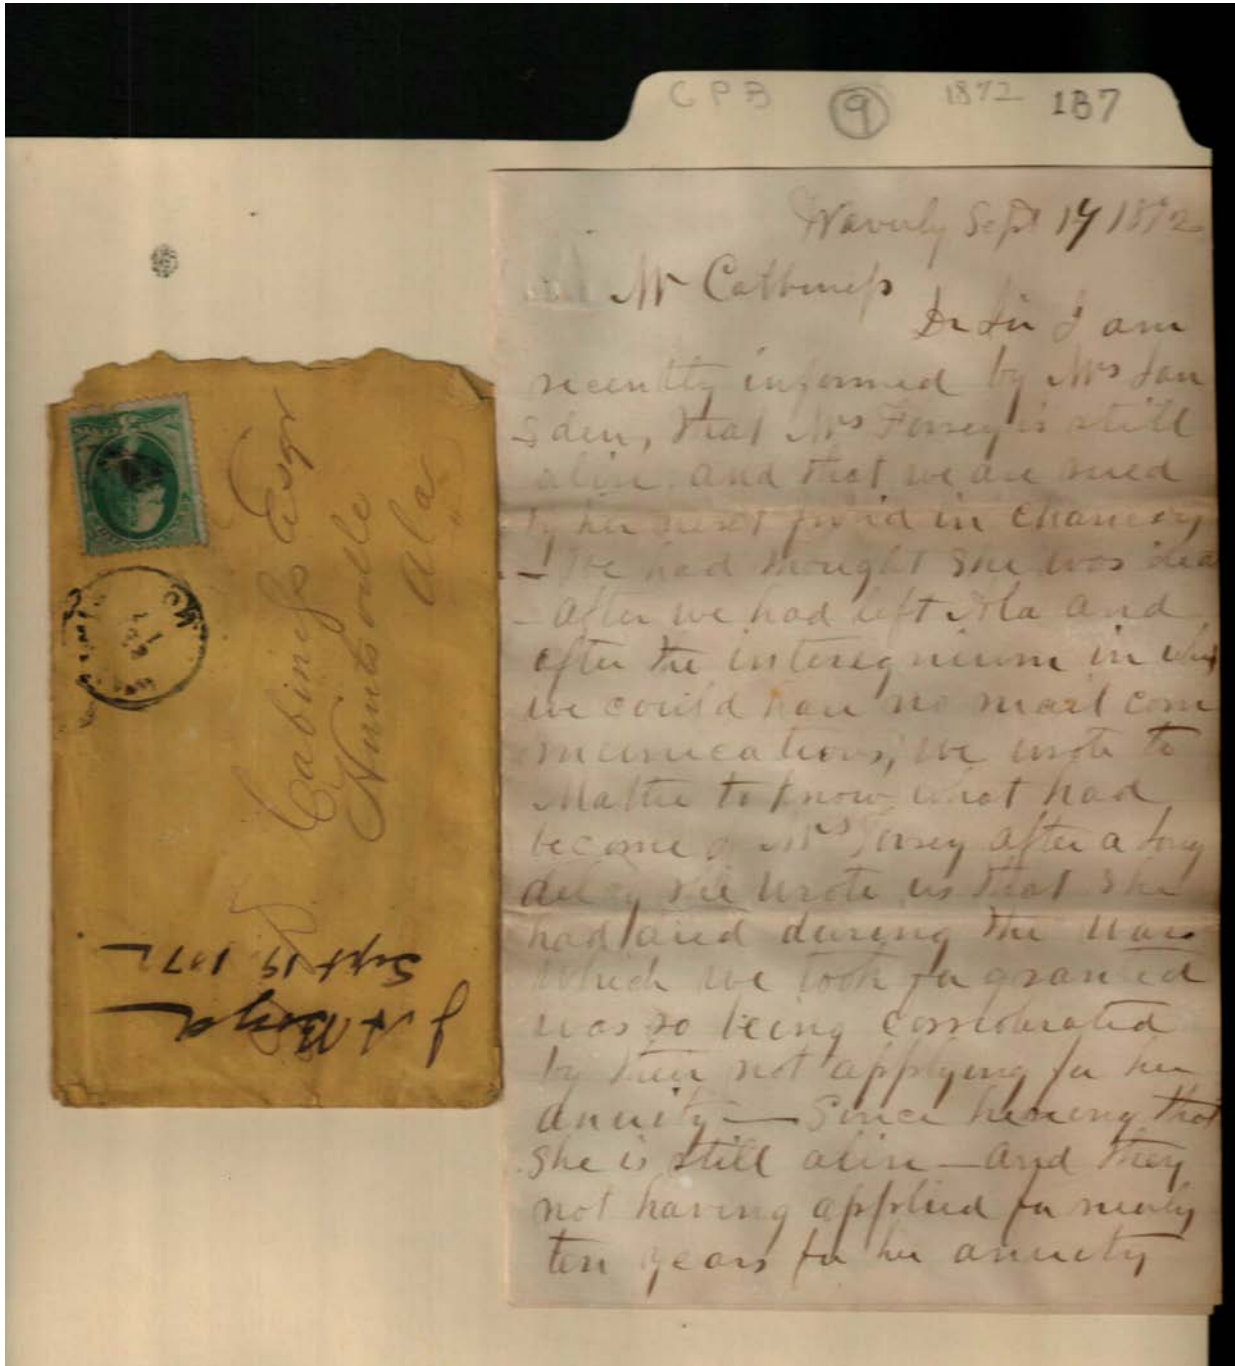 CPB 9 1872 187
Waverly Sept 14 1872
Mr Cabbiness
Dr Sir I am
recently informed by Mrs Lan
sden, that Mrs Torrey is still
alive, and that we are sued
by her next frind in Chancery
- We had thought she was dea
- after we had left Ala and
after the interegnieum in whi
we could have no mail com
munications, we wrote to
Mattie to know what had
become of Mrs Torrey after a long
delay she wrote us that she
had died during the war
which we took for granted
was so being corroborated
by their not applying for her
anuity — Since hereing that
she is still alive — and they
not having applied for nearly
ten years for her anuity
Cabiness Esqr
Huntsville
Ala
MO
J A Boyd
Sept 19 1872